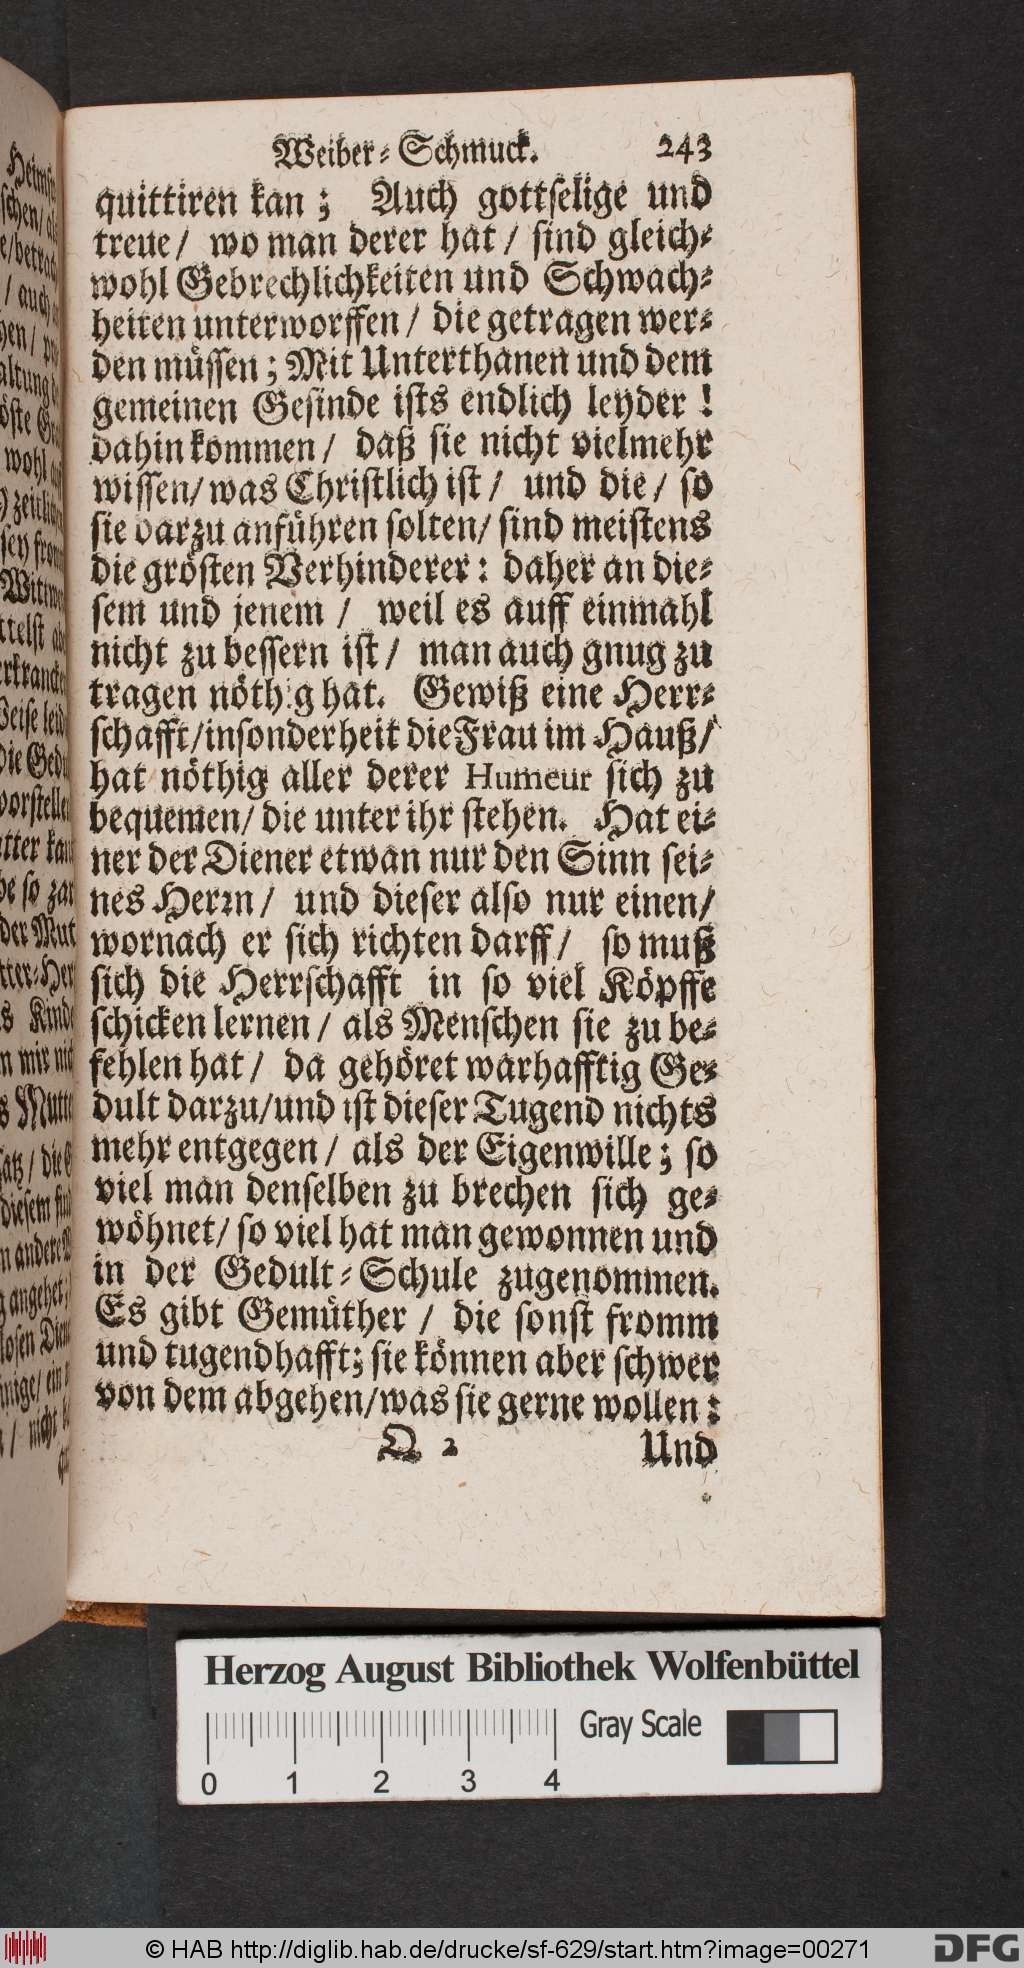 Weiber-Schmuck. 243
quittiren kan; Auch gottselige und
treue/ wo man derer hat/ sind gleich-
wohl Gebrechlichkeiten und Schwach-
heiten unterworffen/ die getragen wer-
den müssen; Mit Unterthanen und dem
gemeinen Gesinde ists endlich leyder!
dahin kommen/ daß sie nicht vielmehr
wissen/ was Christlich ist/ und die/ so
sie darzu anführen solten/ sind meistens
die grösten Verhinderer: daher an die-
sem und jenem/ weil es auff einmahl
nicht zu bessern ist/ man auch gnug zu
tragen nöthig hat. Gewiß eine Herr-
schafft/ insonderheit die Frau im Hauß/
hat nöthig aller derer Humeur sich zu
bequemen/ die unter ihr stehen. Hat ei-
ner der Diener etwan nur den Sinn sei-
nes Herrn/ und dieser also nur einen/
wornach er sich richten darff/ so muß
sich die Herrschafft in so viel Köpffe
schicken lernen/ als Menschen sie zu be-
fehlen hat/ da gehöret warhafftig Ge-
dult darzu/ und ist dieser Tugend nichts
mehr entgegen/ als der Eigenwille; so
viel man denselben zu brechen sich ge-
wöhnet/ so viel hat man gewonnen und
in der Gedult-Schule zugenommen.
Es gibt Gemüther/ die sonst fromm
und tugendhafft; sie können aber schwer
von dem abgehen/ was sie gerne wollen:
Q 2 Und
Herzog August Bibliothek Wolfenbüttel
Gray Scale
0 1 2 3 4
© HAB http://diglib.hab.de/drucke/sf-629/start.htm?image=00271
DFG